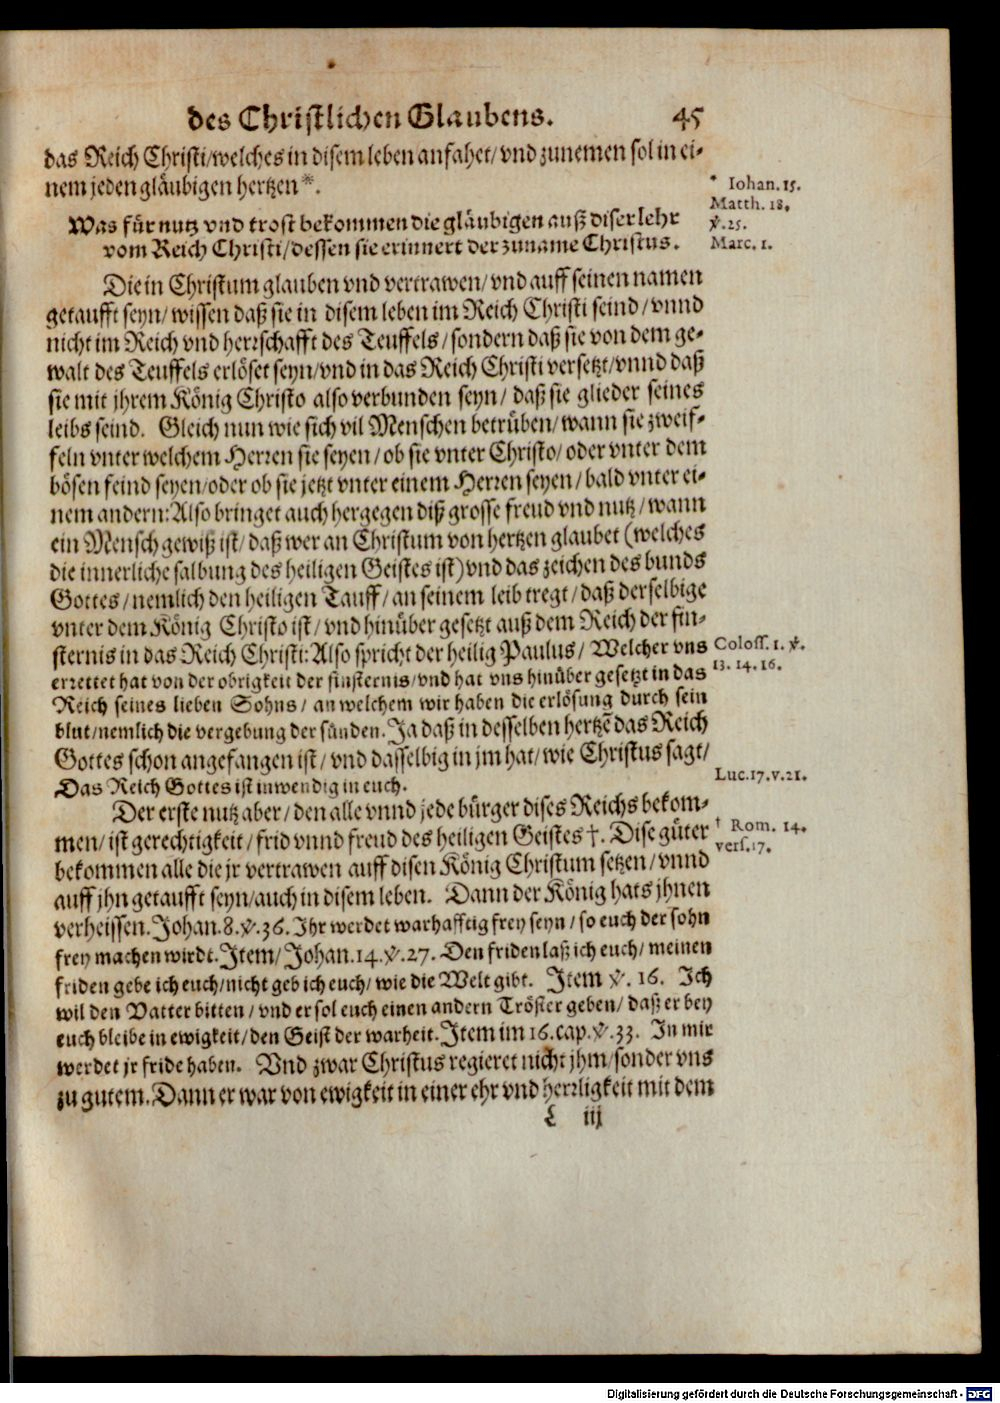 des Christlichen Glaubens. 45
das Reich Christi/welches in disem leben anfahet/vnd zunemen sol in ei-
nem jeden gläubigen hertzen*.
* Iohan. 15.
Matth. 18.
℣. 25.
Marc. 1.
Was für nutz vnd trost bekommen die gläubigen auß diser lehr
vom Reich Christi/dessen sie erinnert der zuname Christus.
Die in Christum glauben vnd vertrawen/vnd auff seinen namen
getaufft seyn/wissen daß sie in disem leben im Reich Christi seind/vnnd
nicht im Reich vnd herrschafft des Teuffels/sondern daß sie von dem ge-
walt des Teuffels erlöset seyn/vnd in das Reich Christi versetzt/vnnd daß
sie mit jhrem König Christo also verbunden seyn/ daß sie glieder seines
leibs seind. Gleich nun wie sich vil Menschen betrüben/wann sie zweif-
feln vnter welchem Herren sie seyen/ob sie vnter Christo/oder vnter dem
bösen feind seyen/oder ob sie jetzt vnter einem Herren seyen/bald vnter ei-
nem andern: Also bringet auch hergegen diß grosse freud vnd nutz/wann
ein Mensch gewiß ist/daß wer an Christum von hertzen glaubet (welches
die innerliche salbung des heiligen Geistes ist) vnd das zeichen des bunds
Gottes/nemlich den heiligen Tauff/an seinem leib tregt/daß derselbige
vnter dem König Christo ist/vnd hinüber gesetzt auß dem Reich der fin-
sternis in das Reich Christi: Also spricht der heilig Paulus/ Welcher vns
Coloss. 1. ℣.
13. 14. 16.
errettet hat von der obrigkeit der finsternis/vnd hat vns hinüber gesetzt in das
Reich seines lieben Sohns/ an welchem wir haben die erlösung durch sein
blut/nemlich die vergebung der sünden. Ja daß in desselben hertzē das Reich
Gottes schon angefangen ist/vnd dasselbig in jm hat/wie Christus sagt/
Das Reich Gottes ist inwendig in euch.
Luc. 17. v. 21.
Der erste nutz aber/den alle vnnd jede bürger dises Reichs bekom-
men/ist gerechtigkeit/frid vnnd freud des heiligen Geistes †. Dise güter
† Rom. 14.
vers. 17.
bekommen alle die jr vertrawen auff disen König Christum setzen/vnnd
auff jhn getaufft seyn/auch in disem leben. Dann der König hats jhnen
verheissen. Johan. 8. ℣. 36. Ihr werdet warhafftig frey seyn/so euch der sohn
frey machen wirdt. Item/ Johan. 14. ℣. 27. Den friden laß ich euch/meinen
friden gebe ich euch/nicht geb ich euch/wie die Welt gibt. Item ℣. 16. Ich
wil den Vatter bitten/vnd er sol euch einen andern Tröster geben/daß er bey
euch bleibe in ewigkeit/den Geist der warheit. Item im 16. cap. ℣. 33. In mir
werdet jr fride haben. Vnd zwar Christus regieret nicht jhm/sonder vns
zu gutem. Dann er war von ewigkeit in einer ehr vnd herrligkeit mit dem
L iij
Digitalisierung gefördert durch die Deutsche Forschungsgemeinschaft - DFG